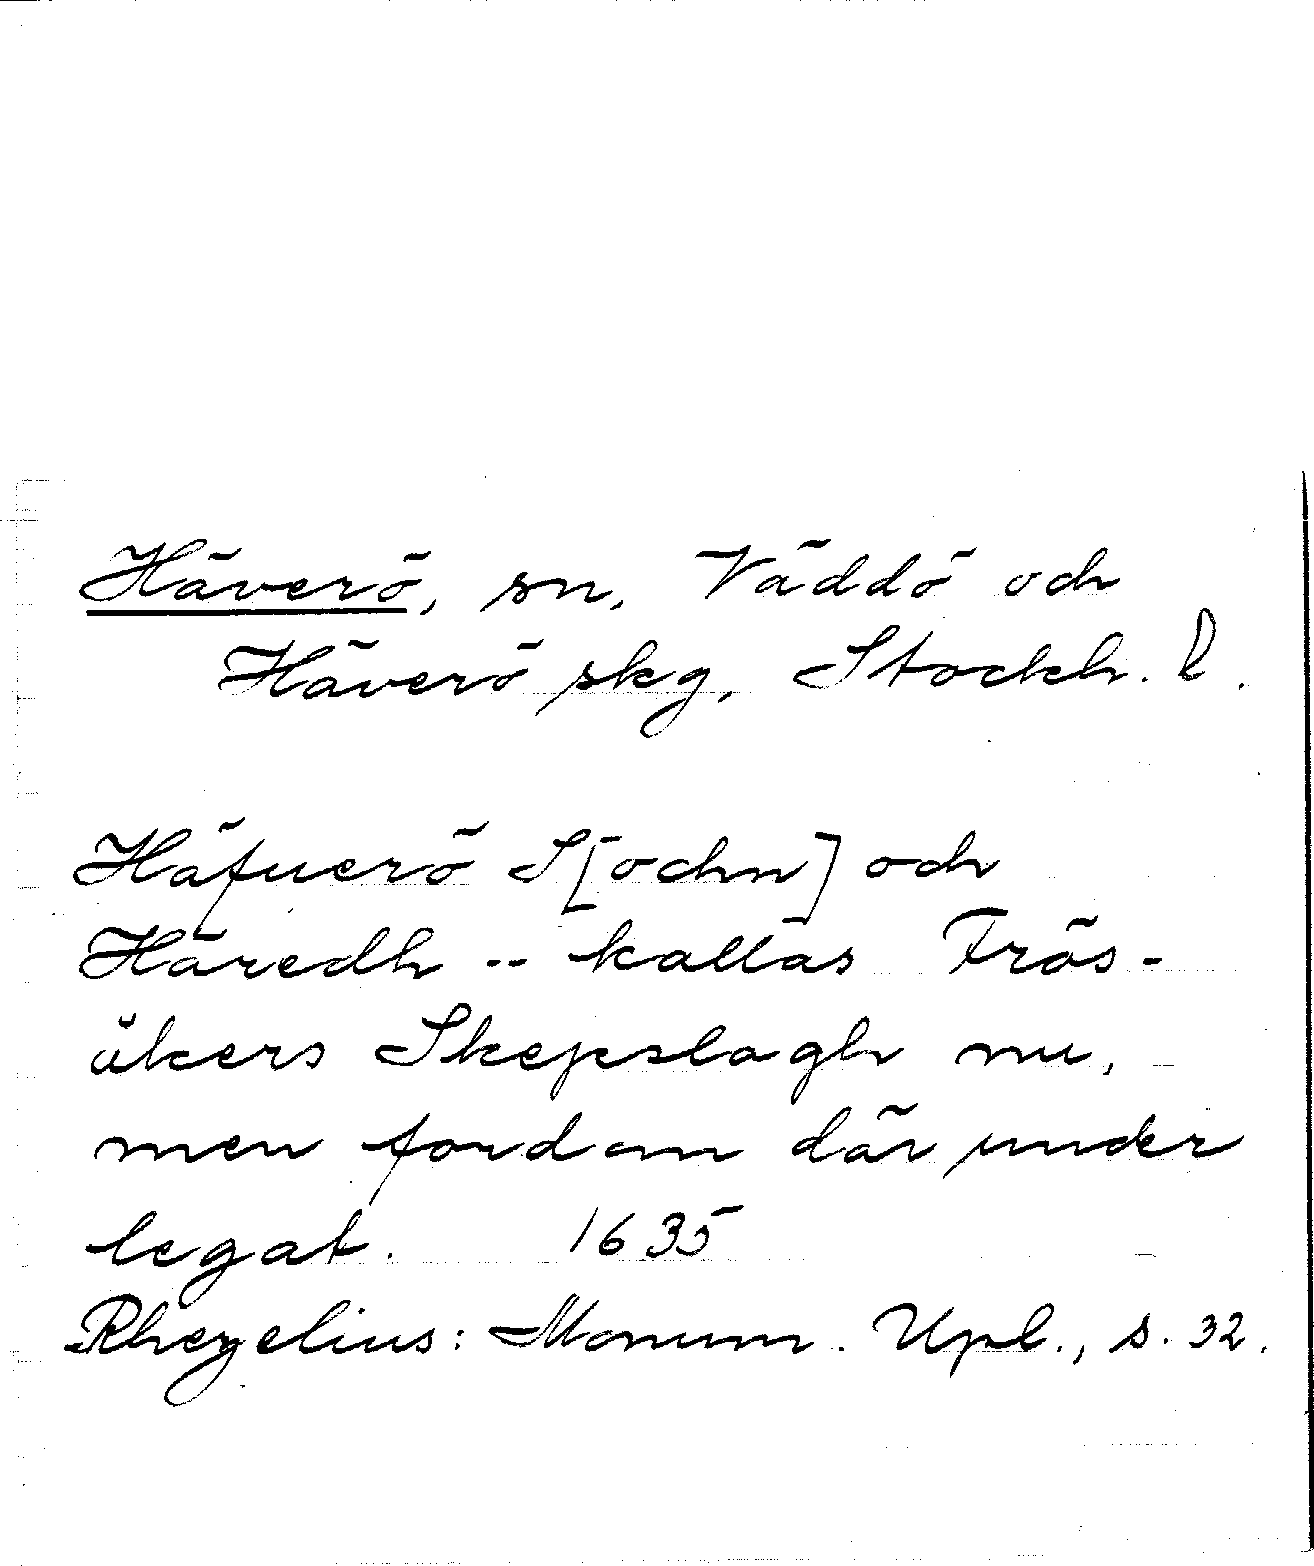 Häverö, sn, Väddö och
Häverö skg, Stockh. l.
Häfuerö S[ochn] och
Häredh -- kallas Frös-
åkers Skepslagh nu,
men fordom där under
legat. 1635
Rhezelius: Monum. Upl., s. 32.